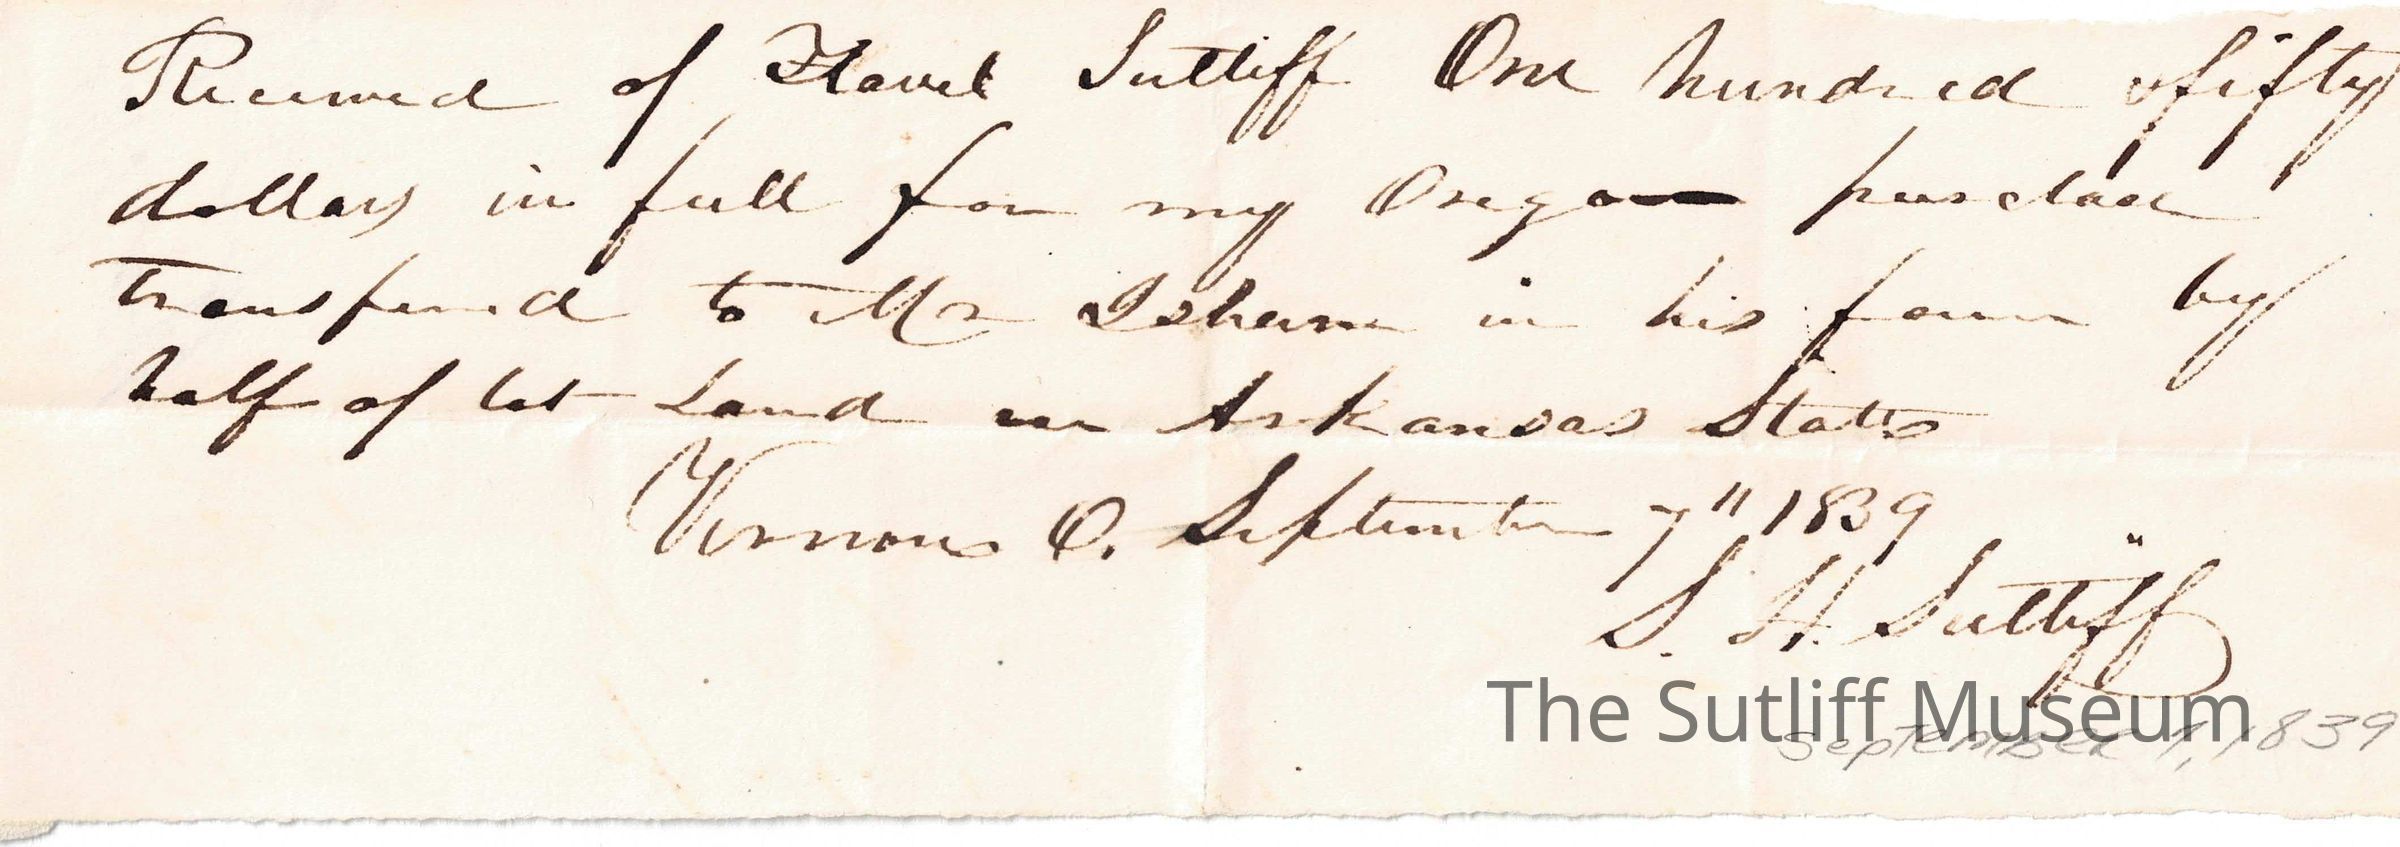 Received of Flavel Sutliff One hundred & fifty
dollars in full for my Oregon purchase
transfered to Mr Isham in his favour by
half of lot Land in Arkansas State
Vernon O. September 7" 1839
S. H. Sutliff
The Sutliff Museum
September 7, 1839